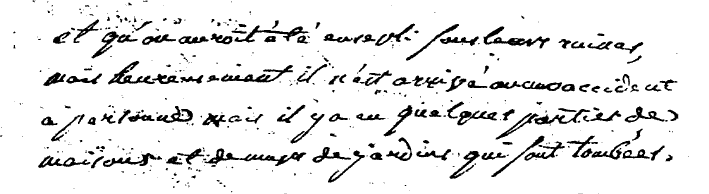 et qu'on auroit été enseveli sous leurs ruines,
mais heureusement il n'est arrivé aucun accident
a personne mais il y a eu quelques parties de
maisons et de murs de jardins qui sont tombées.